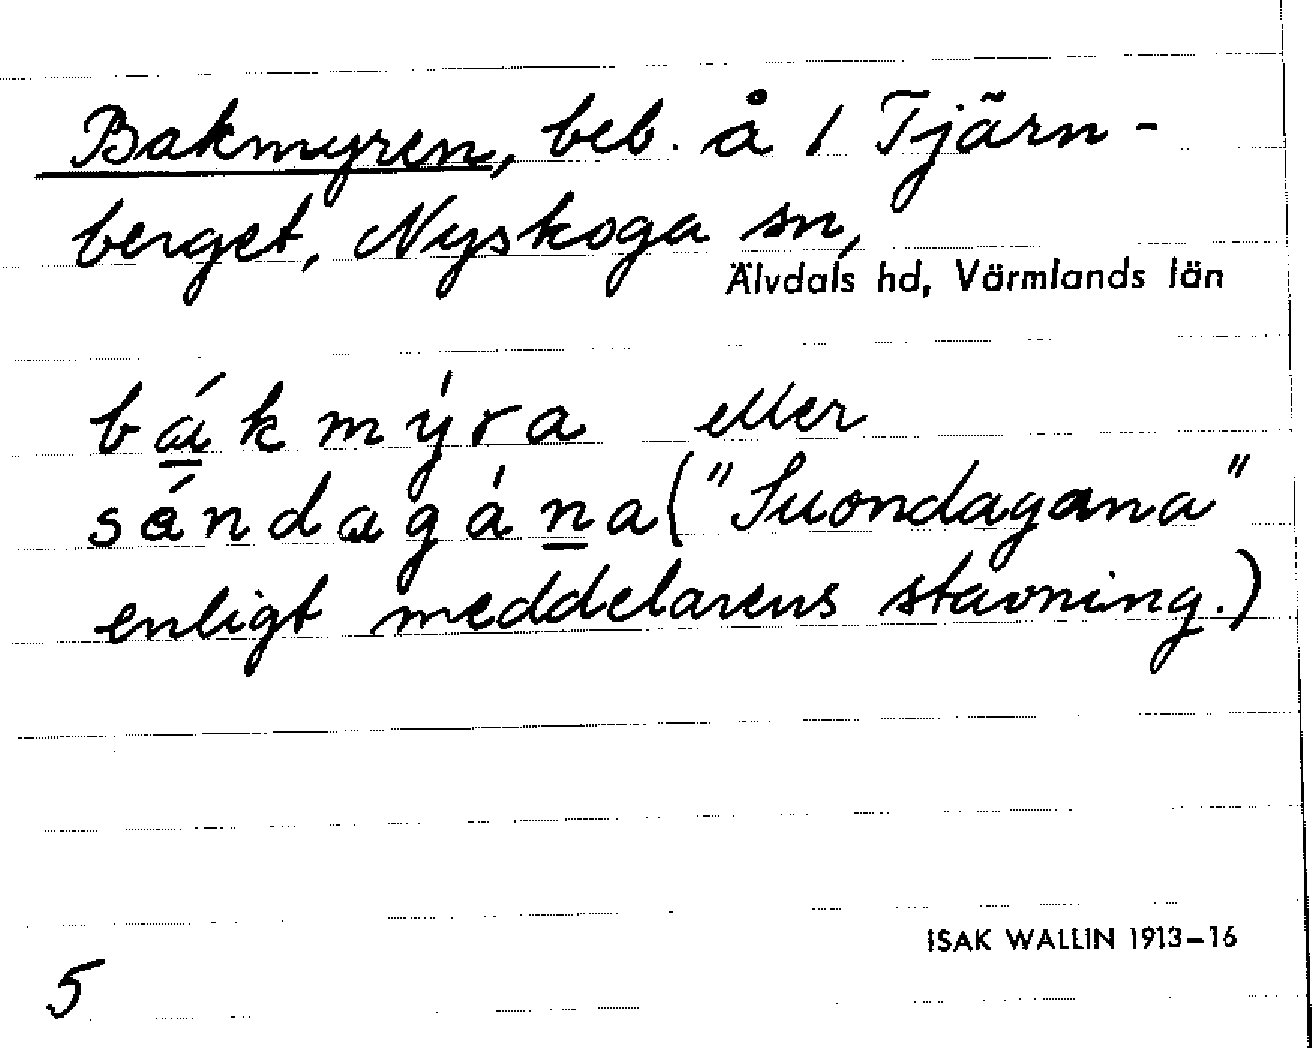 Bakmyren, beb. å 1 Tjärn-
berget, Nyskoga sn,
Älvdals hd, Värmlands län
bákmýra eller
sándagána ("Suondagana"
enligt meddelarens stavning.)
ISAK WALLIN 1913–16
5